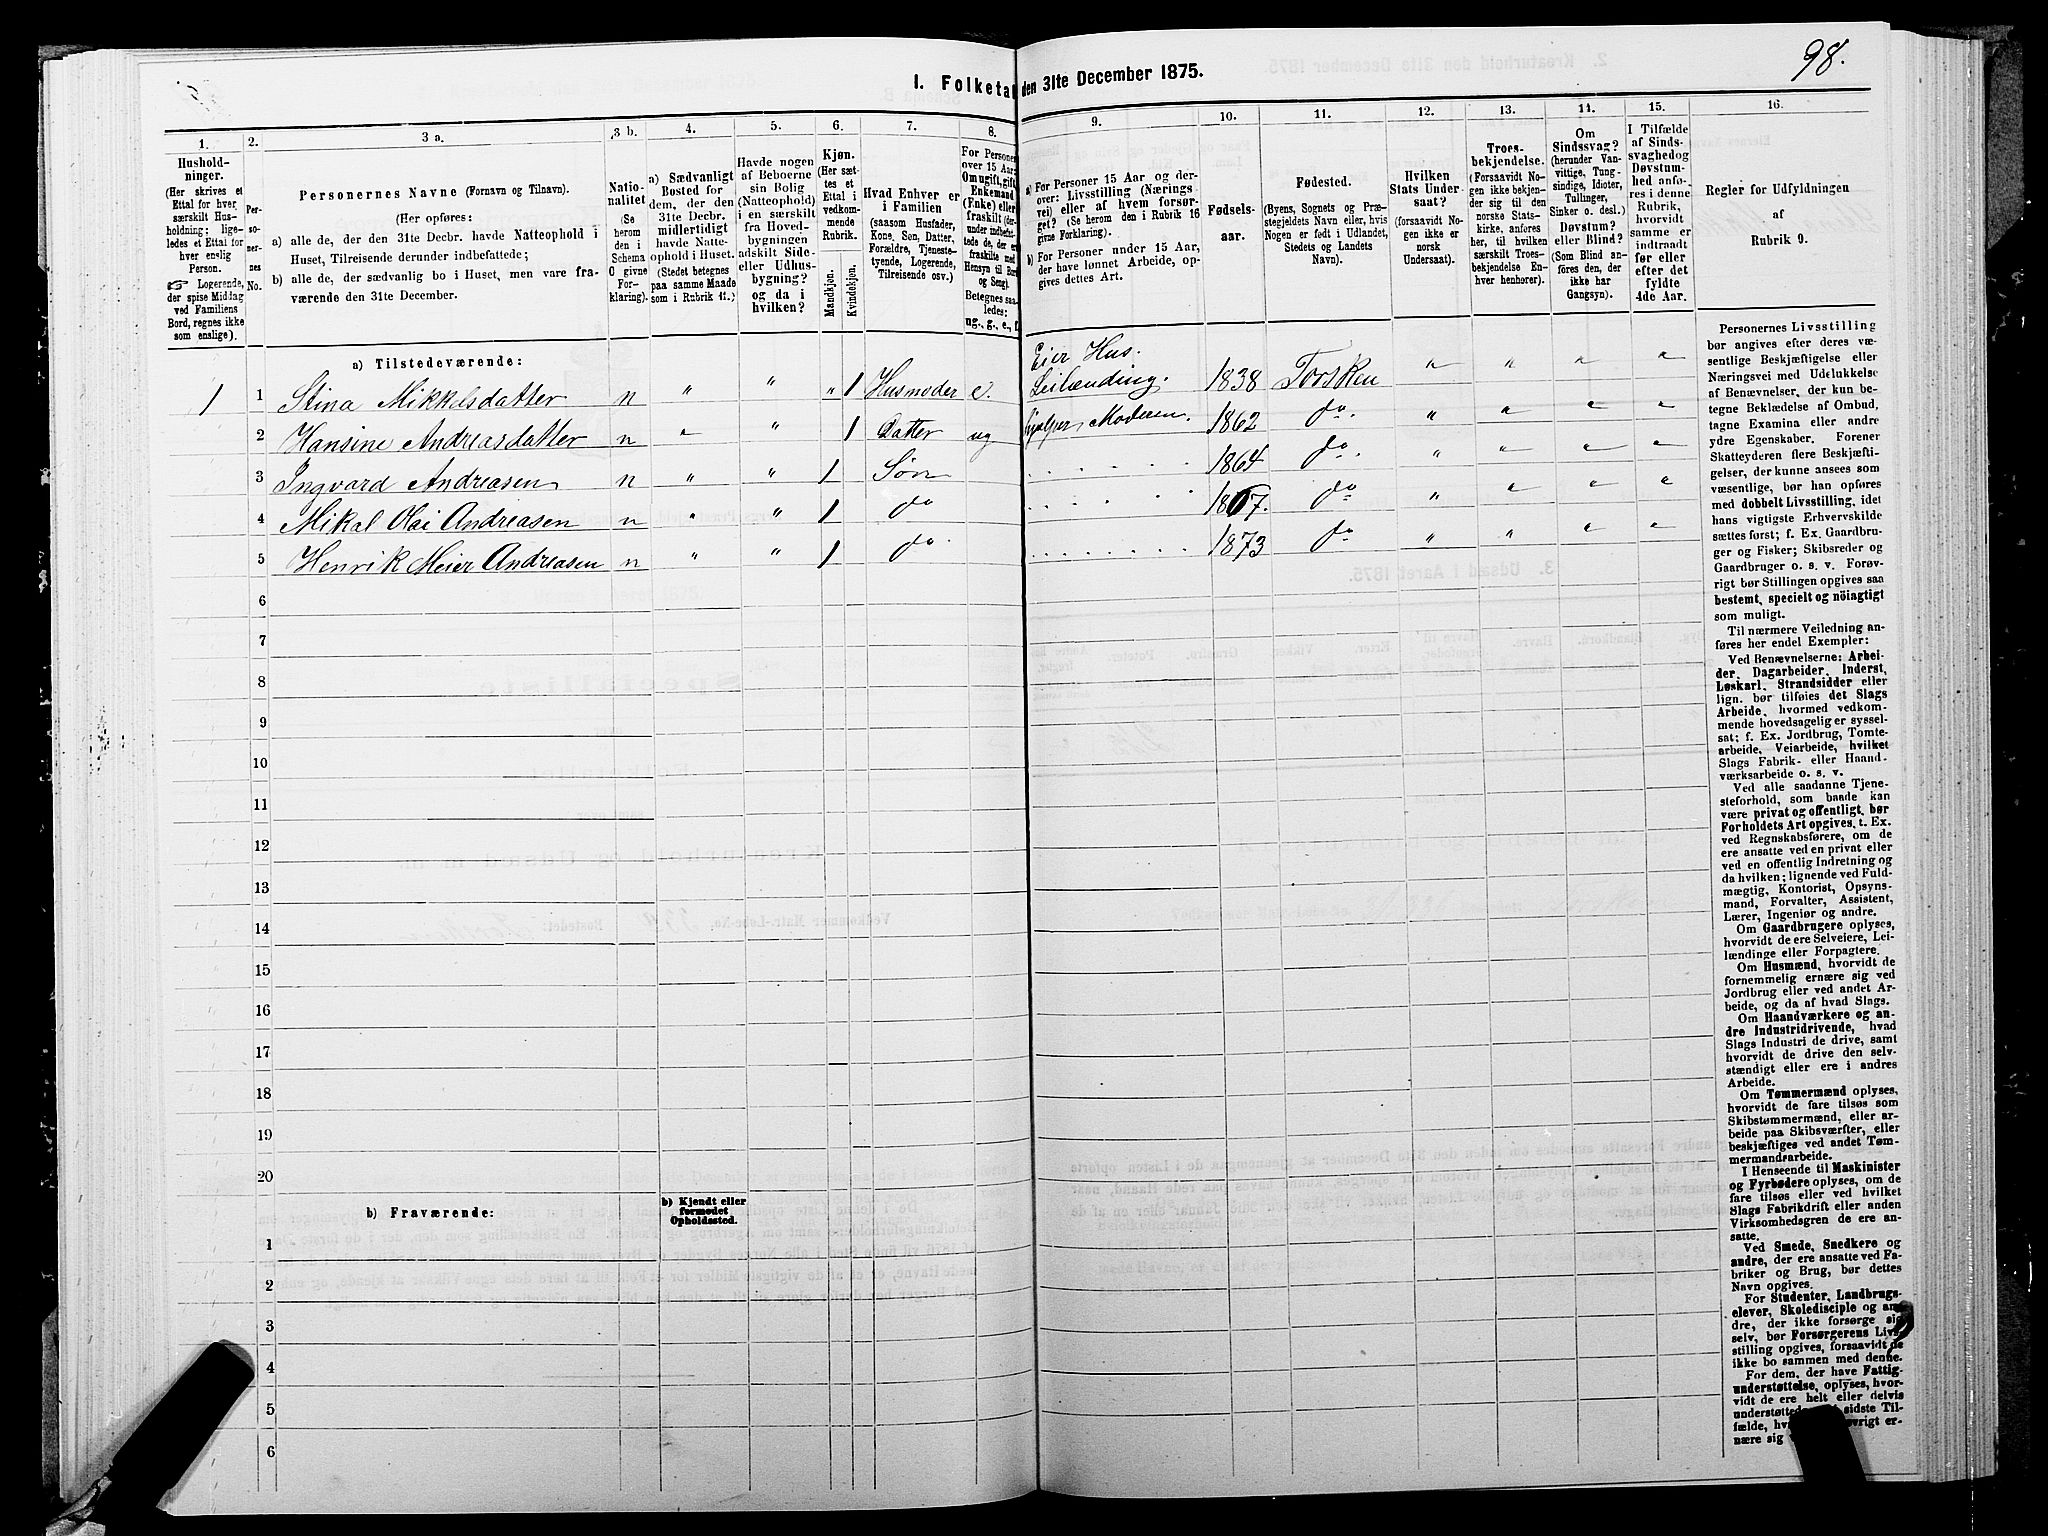 98.
I. Folketal den 31te December 1875.
1. 2. 3 a. 3 b. 4. 5. 6. 7. 8. 9. 10. 11. 12. 13. 14. 15. 16.
Hushold-
ninger.
(Her skrives et
Ettal for hver
særskilt Hus-
holdning; lige-
ledes et Ettal for
hver enslig
Person.
☞ Logerende,
der spise Middag
ved Familiens
Bord, regnes ikke
som enslige).
Per-
so-
ner-
nes
No.
Personernes Navne (Fornavn og Tilnavn).
(Her opføres:
a) alle de, der den 31te Decbr. havde Natteophold i
Huset, Tilreisende derunder indbefattede;
b) alle de, der sædvanlig bo i Huset, men vare fra-
værende den 31te December.
Natio-
nalitet
(Se
herom
den i
Schema
O givne
For-
klaring).
a) Sædvanligt
Bosted for
dem, der den
31te Decbr.
midlertidigt
havde Natte-
ophold i Huset.
(Stedet betegnes
paa samme Maade
som i Rubrik 11.)
Havde nogen
af Beboerne
sin Bolig
(Natteophold)
i en særskilt
fra Hoved-
bygningen
adskilt Side-
eller Udhus-
bygning?
og da i
hvilken?
Kjøn.
(Her sæt-
tes et
Ettal i
vedkom-
mende
Rubrik.)
Mandkjøn.
Kvindekjøn.
Hvad Enhver er
i Familien
(saasom Husfader,
Kone, Søn, Datter,
Forældre, Tjeneste-
tyende, Logerende,
Tilreisende osv.)
For Personer
over 15 Aar:
Om ugift, gift,
Enkemand
(Enke) eller
fraskilt (der-
under indbefat-
tede de, der er
fraskilte med
Hensyn til Bord
og Seng).
Betegnes saa-
ledes:
ug., g., e., f.
a) For Personer 15 Aar og der-
over: Livsstilling (Nærings-
vei) eller af hvem forsør-
get? (Se herom den i Rubrik 16
givne Forklaring).
b) For Personer under 15 Aar,
der have lønnet Arbeide, op-
gives dettes Art.
Fødsels-
aar.
Fødested.
(Byens, Sognets og Præ-
stegjeldets Navn eller, hvis
Nogen er født i Udlandet,
Stedets og Landets
Navn).
Hvilken
Stats Under-
saat?
(forsaavidt No-
gen ikke er
norsk
Undersaat).
Troes-
bekjendelse.
(Forsaavidt No-
gen ikke bekjen-
der sig til den
norske Stats-
kirke, anføres
her, til hvilken
særskilt Troes-
bekjendelse En-
hver henhører).
Om
Sindssvag?
(herunder Van-
vittige, Tung-
sindige, Idioter,
Tullinger,
Sinker o. desl.)
Døvstum?
eller Blind?
(Som Blind an-
føres den, der
ikke har
Gangsyn).
I Tilfælde
af Sinds-
svaghed og
Døvstum-
hed anfø-
res i denne
Rubrik,
hvorvidt
samme er
indtraadt
før eller
efter det
fyldte
4de Aar.
Regler for Udfyldningen
af
Rubrik 9.
a) Tilstedeværende:
1 1 Stina Mikkelsdatter n " " " 1 Husmoder e. Eier Hus. Leilænding. 1838 Torsken " " " "
2 Hansine Andreasdatter n " " 1 Datter ug hjelper Moderen. 1862 do. " " " "
3 Ingvard Andreasen n " " 1 Søn 1864 do. " " " "
4 Mikal Olai Andreasen n " " 1 do 1867. do " " " "
5 Henrik Meier Andreasen n " " 1 do 1873 do " " " "
6
7
8
9
10
11
12
13
14
15
16
17
18
19
20
b) Fraværende: b) Kjendt eller
formodet
Opholdssted.
1
2
3
4
5
6
Personernes Livsstilling
bør angives efter deres væ-
sentlige Beskjæftigelse eller
Næringsvei med Udelukkelse
af Benævnelser, der kun be-
tegne Beklædelse af Ombud,
tagne Examina eller andre
ydre Egenskaber. Forener
Skatteyderen flere Beskjæfti-
gelser, der kunne ansees som
væsentlige, bør han opføres
med dobbelt Livsstilling, idet
hans vigtigste Erhvervskilde
sættes først; f. Ex. Gaardbru-
ger og Fisker; Skibsreder og
Gaardbruger o. s. v. Forøv-
rigt bør Stillingen opgives saa
bestemt, specielt og nöiagtigt
som muligt.
Til nærmere Veiledning an-
føres her endel Exempler:
Ved Benævnelserne: Arbei-
der, Dagarbeider, Inderst,
Løskarl, Strandsidder eller
lign. bør tilføies det Slags
Arbeide, hvormed vedkom-
mende hovedsagelig er syssel-
sat; f. Ex. Jordbrug, Tomte-
arbeide, Veiarbeide, hvilket
Slags Fabrik- eller Haand-
værksarbeide o. s. v.
Ved alle saadanne Tjene-
steforhold, som baade kan
være privat og offentligt, bør
Forholdets Art opgives, t. Ex.
ved Regnskabsførere, om de
ere ansatte ved en privat eller
ved en offentlig Indretning og
da hvilken; lignende ved Fuld-
mægtig, Kontorist, Opsyns-
mand, Forvalter, Assistent,
Lærer, Ingeniør og andre.
Om Gaardbrugere oplyses,
hvorvidt de ere Selveiere, Lei-
lændinge eller Forpagtere.
Om Husmænd, hvorvidt de
fornemmelig ernære sig ved
Jordbrug eller ved andet Ar-
beide, og da af hvad Slags.
Om Haandværkere og an-
dre Industridrivende, hvad
Slags Industri de drive, samt
hvorvidt de drive den selv-
stændigt eller ere i andres
Arbeide.
Om Tømmermænd oplyses,
hvorvidt de fare tilsøs som
Skibstømmermænd, eller ar-
beide paa Skibsværfter, eller
beskjæftiges ved andet Tøm-
mermandsarbeide.
I Henseende til Maskinister
og Fyrbødere oplyses, om de
fare tilsøs eller ved hvilket
Slags Fabrikdrift eller anden
Virksomhedsgren de ere an-
satte.
Ved Smede, Snedkere og
andre, der ere ansatte ved Fa-
briker og Brug, bør dettes
Navn opgives.
For Studenter, Landbrugs-
elever, Skoledisciple og an-
dre, der ikke forsørge sig
selv, bør Forsørgerens Livs-
stilling opgives, forsaavidt de
ikke bo sammen med denne.
For dem, der have Fattig-
understøttelse, oplyses, hvor-
vidt de ere helt eller delvis
understøttede sidste Til-
fælde, øvrigt er-
nære sig